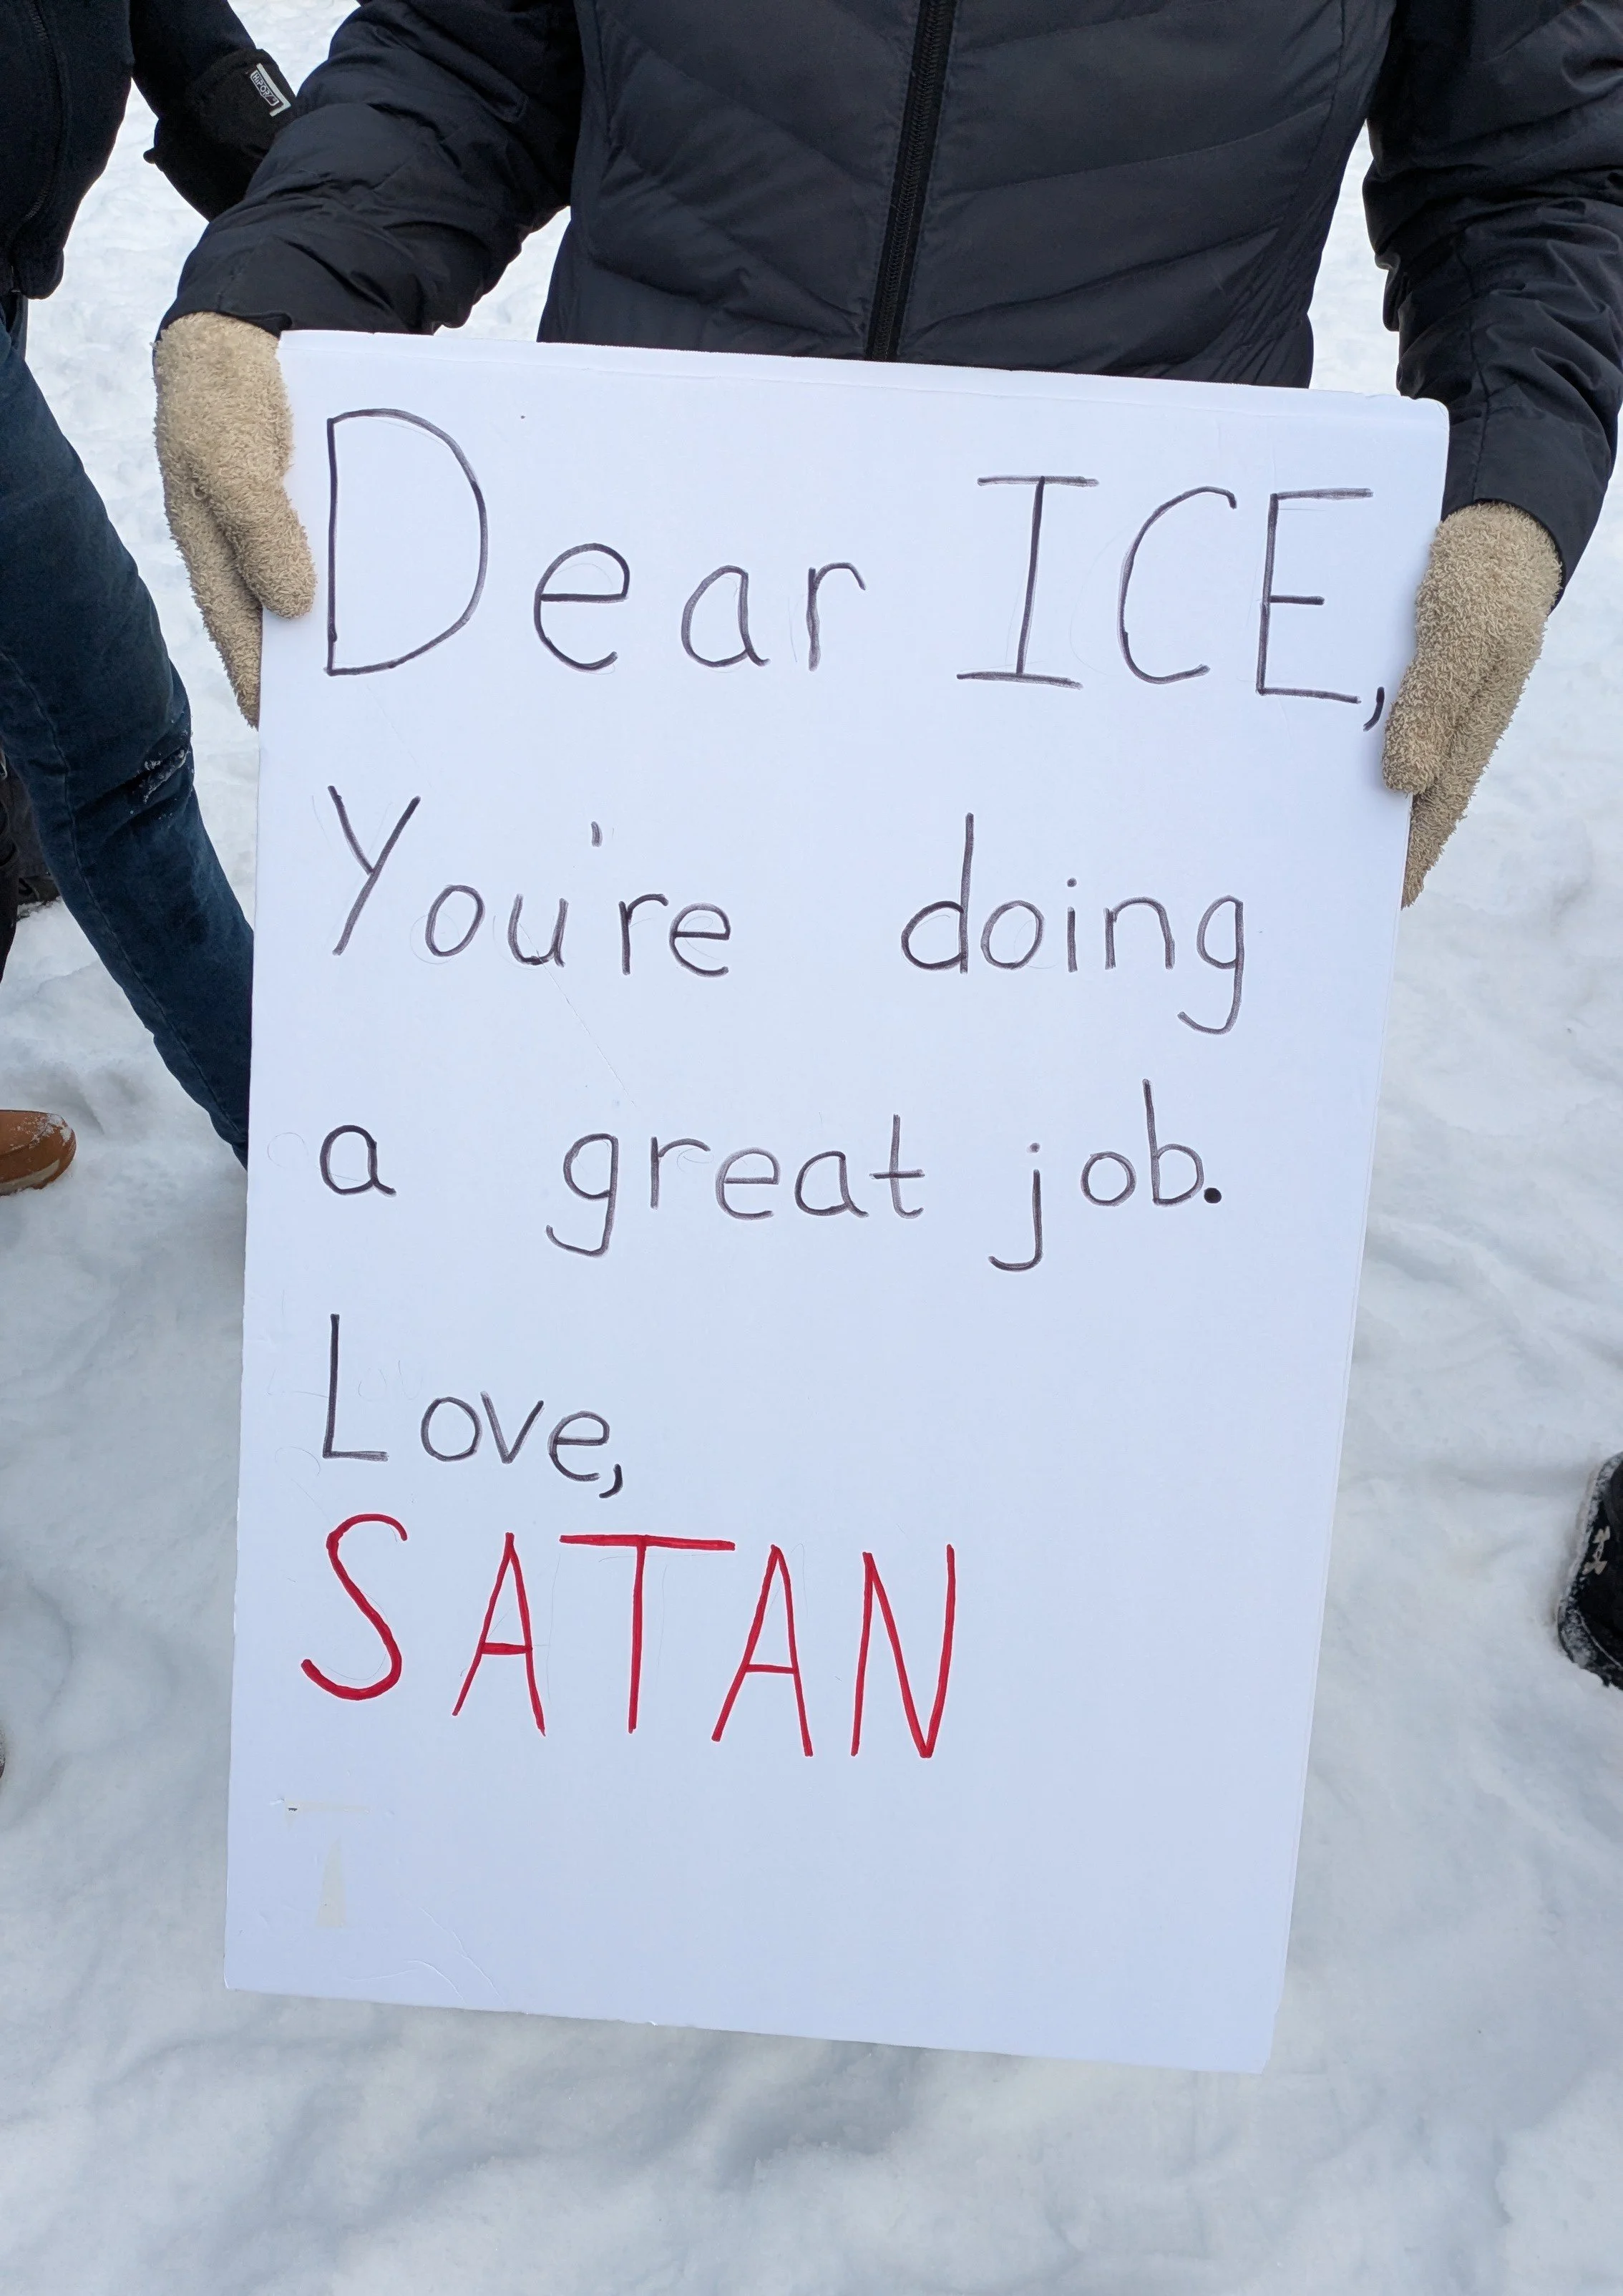 Dear ICE,
You're doing
a great job.
Love,
SATAN